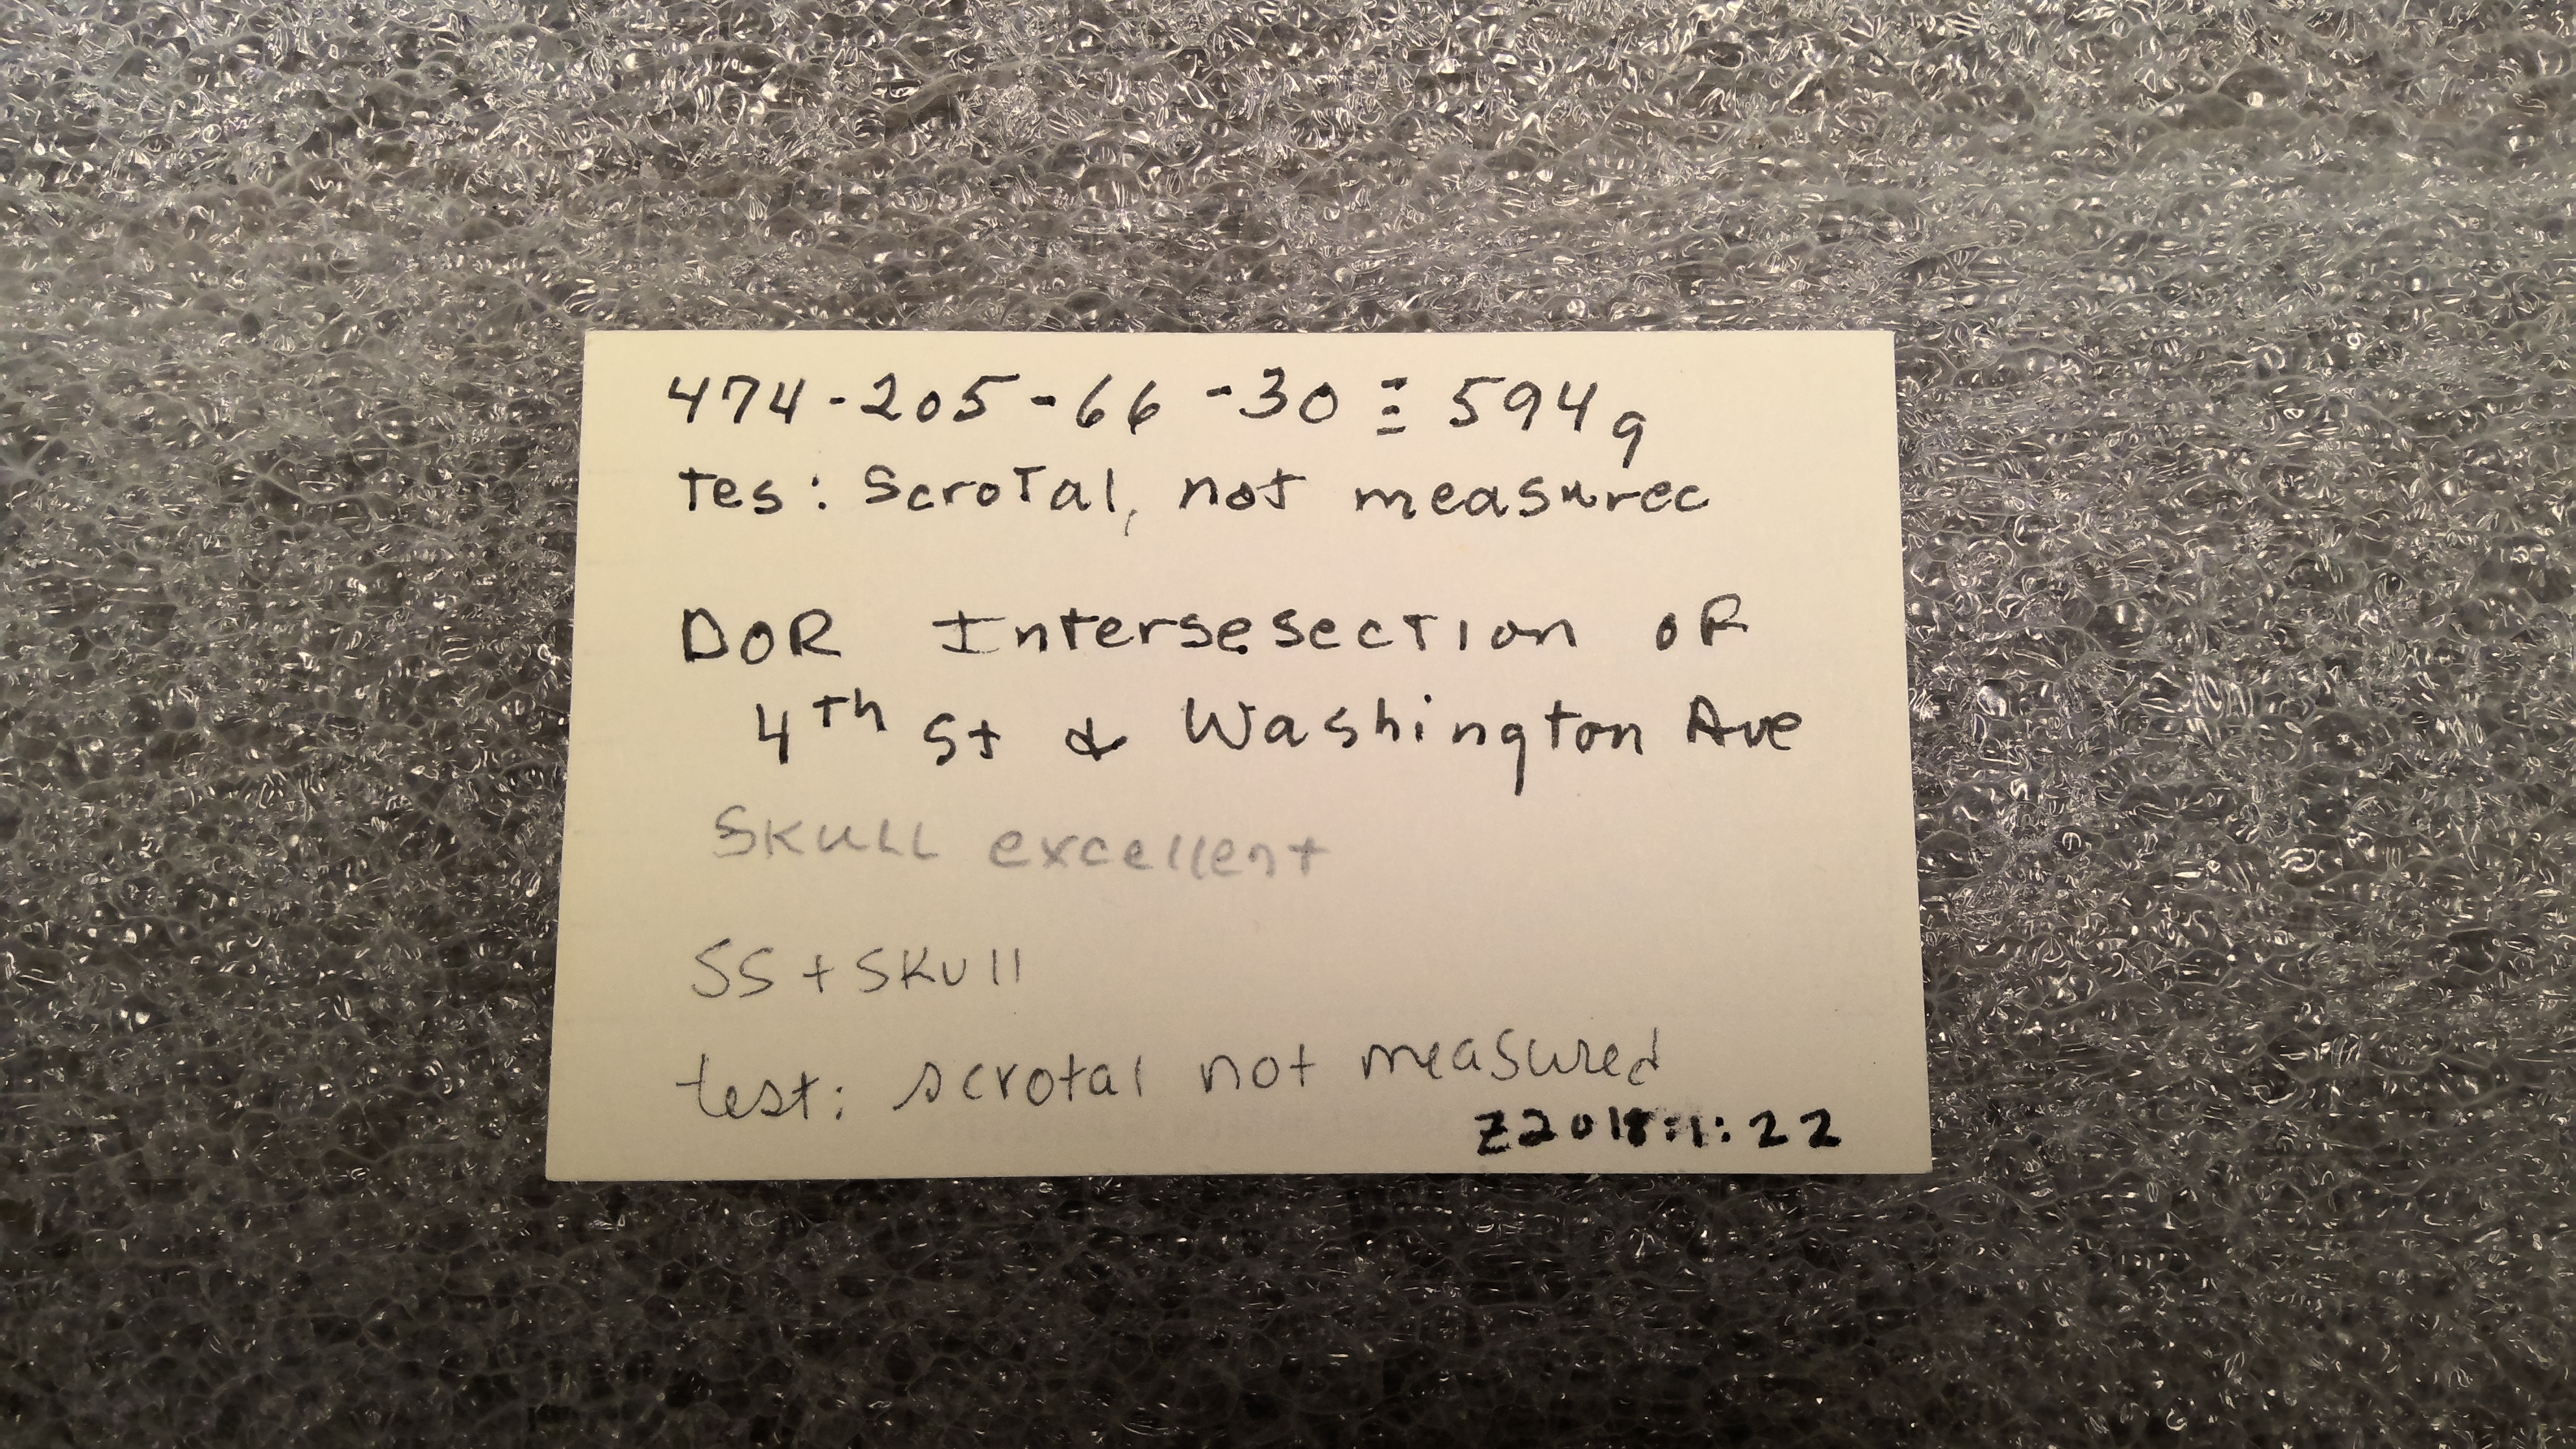 474-205-66-30≡594g
tes: Scrotal, not measurec
DOR Intersesection oF
4th St & Washington Ave
SKULL excellent
SS + SKull
test: scrotal not measured
Z2018:1:22